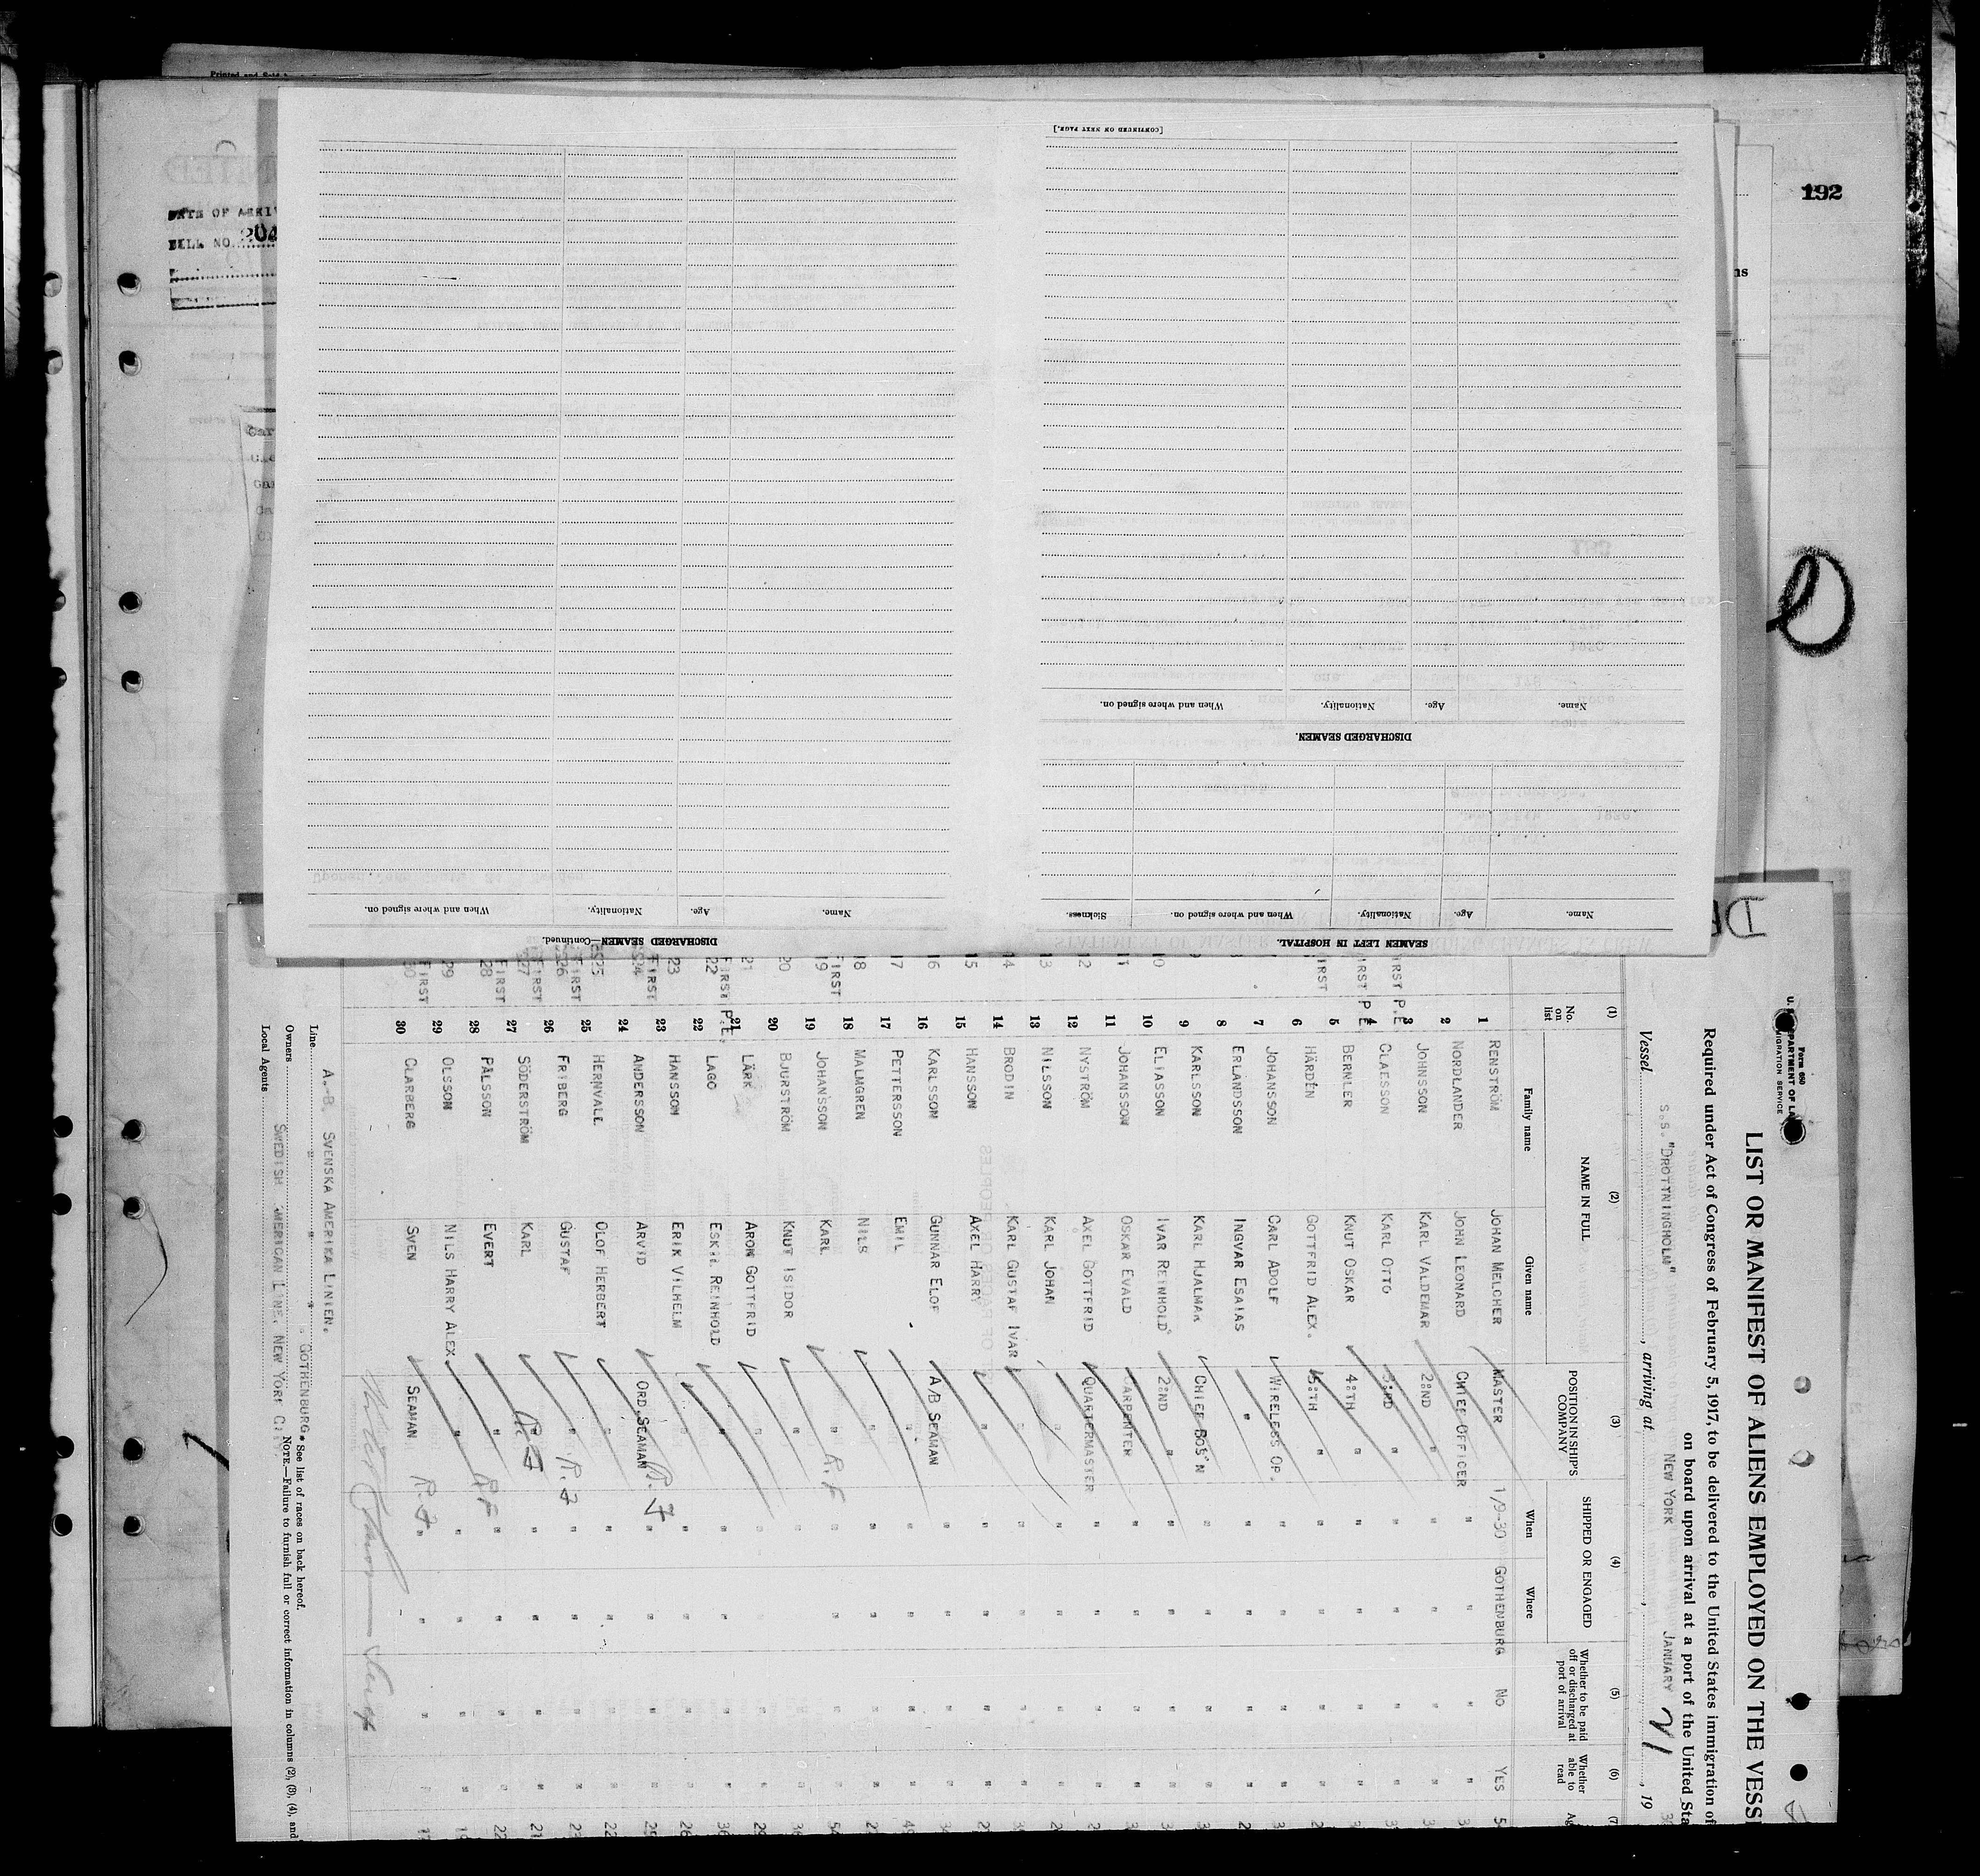 192
DATE OF ARRI
BILL NO. 204
[CONTINUED ON NEXT PAGE.]
Name. Age. Nationality. When and where signed on.
DISCHARGED SEAMEN.
Name. Age. Nationality. When and where signed on. Sickness.
SEAMEN LEFT IN HOSPITAL.
Name. Age. Nationality. When and where signed on.
DISCHARGED SEAMEN—Continued.
Form 680
LIST OR MANIFEST OF ALIENS EMPLOYED ON THE VESS
Required under Act of Congress of February 5, 1917, to be delivered to the United States immigration of
on board upon arrival at a port of the United Sta
Vessel S.S. "DROTTNINGHOLM", arriving at NEW YORK, JANUARY 21, 19
(1) (2) (3) (4) (5) (6) (7
No. on list NAME IN FULL POSITION IN SHIP'S COMPANY SHIPPED OR ENGAGED Whether to be paid off or discharged at port of arrival Whether able to read Ag
Family name Given name When Where
1 RENSTRÖM JOHAN MELCHER MASTER 1/9-30 GOTHENBURG NO YES
2 NORDLANDER JOHN LEONARD CHIEF OFFICER " " " "
3 JOHNSSON KARL VALDEMAR 2:ND " " " " "
4 CLAESSON KARL OTTO 3:RD " " " " "
5 BERNLER KNUT OSKAR 4:TH " " " " "
6 HÄRDÉN GOTTFRID ALEX. 5:TH " " " " "
7 JOHANSSON CARL ADOLF WIRELESS OP. " " " "
8 ERLANDSSON INGVAR ESAIAS " " " " "
9 KARLSSON KARL HJALMAR CHIEF BOS'N " " " "
10 ELIASSON IVAR REINHOLD 2:ND " " " " "
11 JOHANSSON OSKAR EVALD CARPENTER " " " "
12 NYSTRÖM AXEL GOTTFRID QUARTERMASTER " " " "
13 NILSSON KARL JOHAN " " " " "
14 BRODIN KARL GUSTAF IVAR " " " " "
15 HANSSON AXEL HARRY " " " " "
16 KARLSSON GUNNAR ELOF A/B SEAMAN " " " "
17 PETTERSSON EMIL " " " " "
18 MALMGREN NILS " " " " "
19 JOHANSSON KARL " R.F. " " " "
20 BJURSTRÖM KNUT ISIDOR " " " " "
21 LÄRK ARON GOTTFRID " " " " "
22 LAGO ESKIL REINHOLD " " " " "
23 HANSSON ERIK VILHELM " " " " "
24 ANDERSSON ARVID ORD.SEAMAN R.F. " " " "
25 HERNVALL OLOF HERBERT " " " " "
26 FRIBERG GUSTAF " R.F. " " " "
27 SÖDERSTRÖM KARL " R.F. " " " "
28 PÅLSSON EVERT " R.F. " " " "
29 OLSSON NILS HARRY ALEX. " " " " "
30 CLARBERG SVEN SEAMAN R.F. " " " "
Line A.-B. SVENSKA AMERIKA LINIEN.
Owners " " " GOTHENBURG
Local Agents SWEDISH AMERICAN LINE, NEW YORK CITY.
* See list of races on back hereof.
NOTE.—Failure to furnish full or correct information in columns (2), (3), (4), and